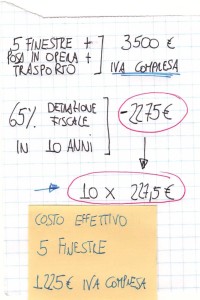 5 FINESTRE + 3500 €
POSA IN OPERA +
TRASPORTO IVA COMPRESA
65% DETRAZIONE -2275€
FISCALE
IN 10 ANNI
10 x 227,5€
COSTO EFFETTIVO
5 FINESTRE
1225€ IVA COMPRESA